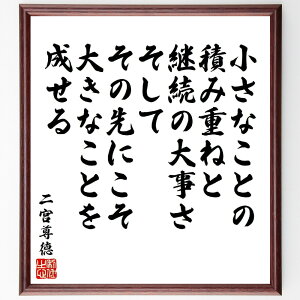 小さなことの
積み重ねと
継続の大事さ
そして
その先にこそ
大きなことを
成せる
二宮尊徳